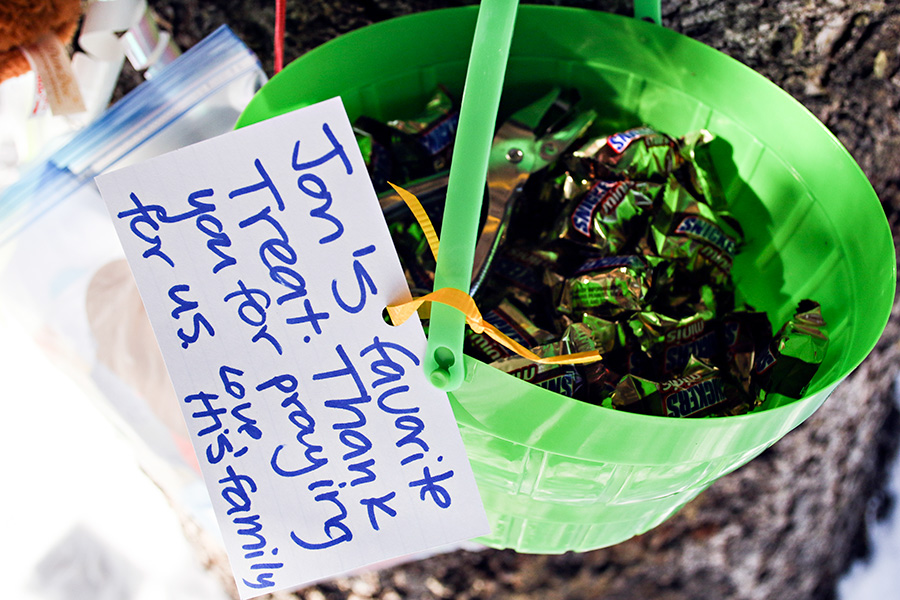 Jon's favorite
Treat. Thank
you for praying
for us.
Love,
His family
SNICKERS
SNICKERS
minis
SNICKERS
minis
SNICKERS